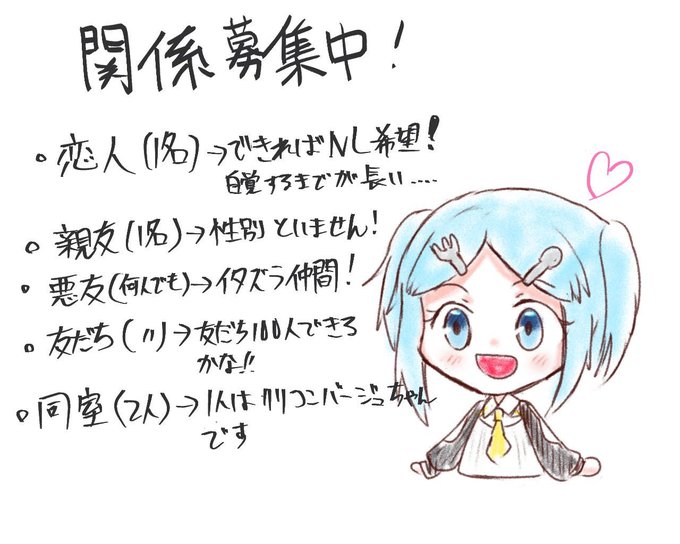 関係募集中!
。恋人(1名)→できればNL希望!
自覚するまでが長い....
。親友(1名)→性別といません!
。悪友(何人でも)→イタズラ仲間!
。友だち(〃)→友だち100人できる
かな!!
。同室(2人)→1人はカリコンバージュちゃん
です